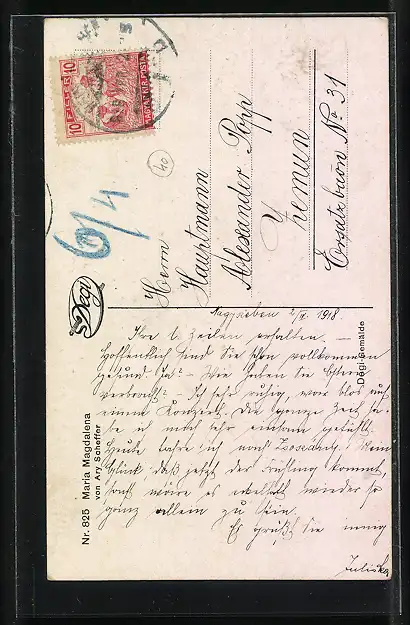 10 FILLÉR 10
MAGYAR KIR. POSTA
40
6/4
Herrn
Hauptmann
Alexander Popp
Zemun
Ersatzbaon No 31
Degi
Nr. 825 Maria Magdalena
von Ary Scheffer
Degi-Gemälde
Nagyszeben 2/IV. 1918.
Ihre l. Zeilen erhalten. —
Hoffentlich sind Sie schon vollkommen
gesund, ja? – Wie haben Sie Ostern
verbracht? – Ich sehr ruhig, war blos auf
einem Konzert. Die ganze Zeit ha-
be ich mich sehr einsam gefühlt.
Heute fahre ich nach! Mein
Glück, daß jetzt der Frühling kommt,
sonst wäre es wieder so
ganz allein zu sein.
Es grüßt Sie innig
Juliska